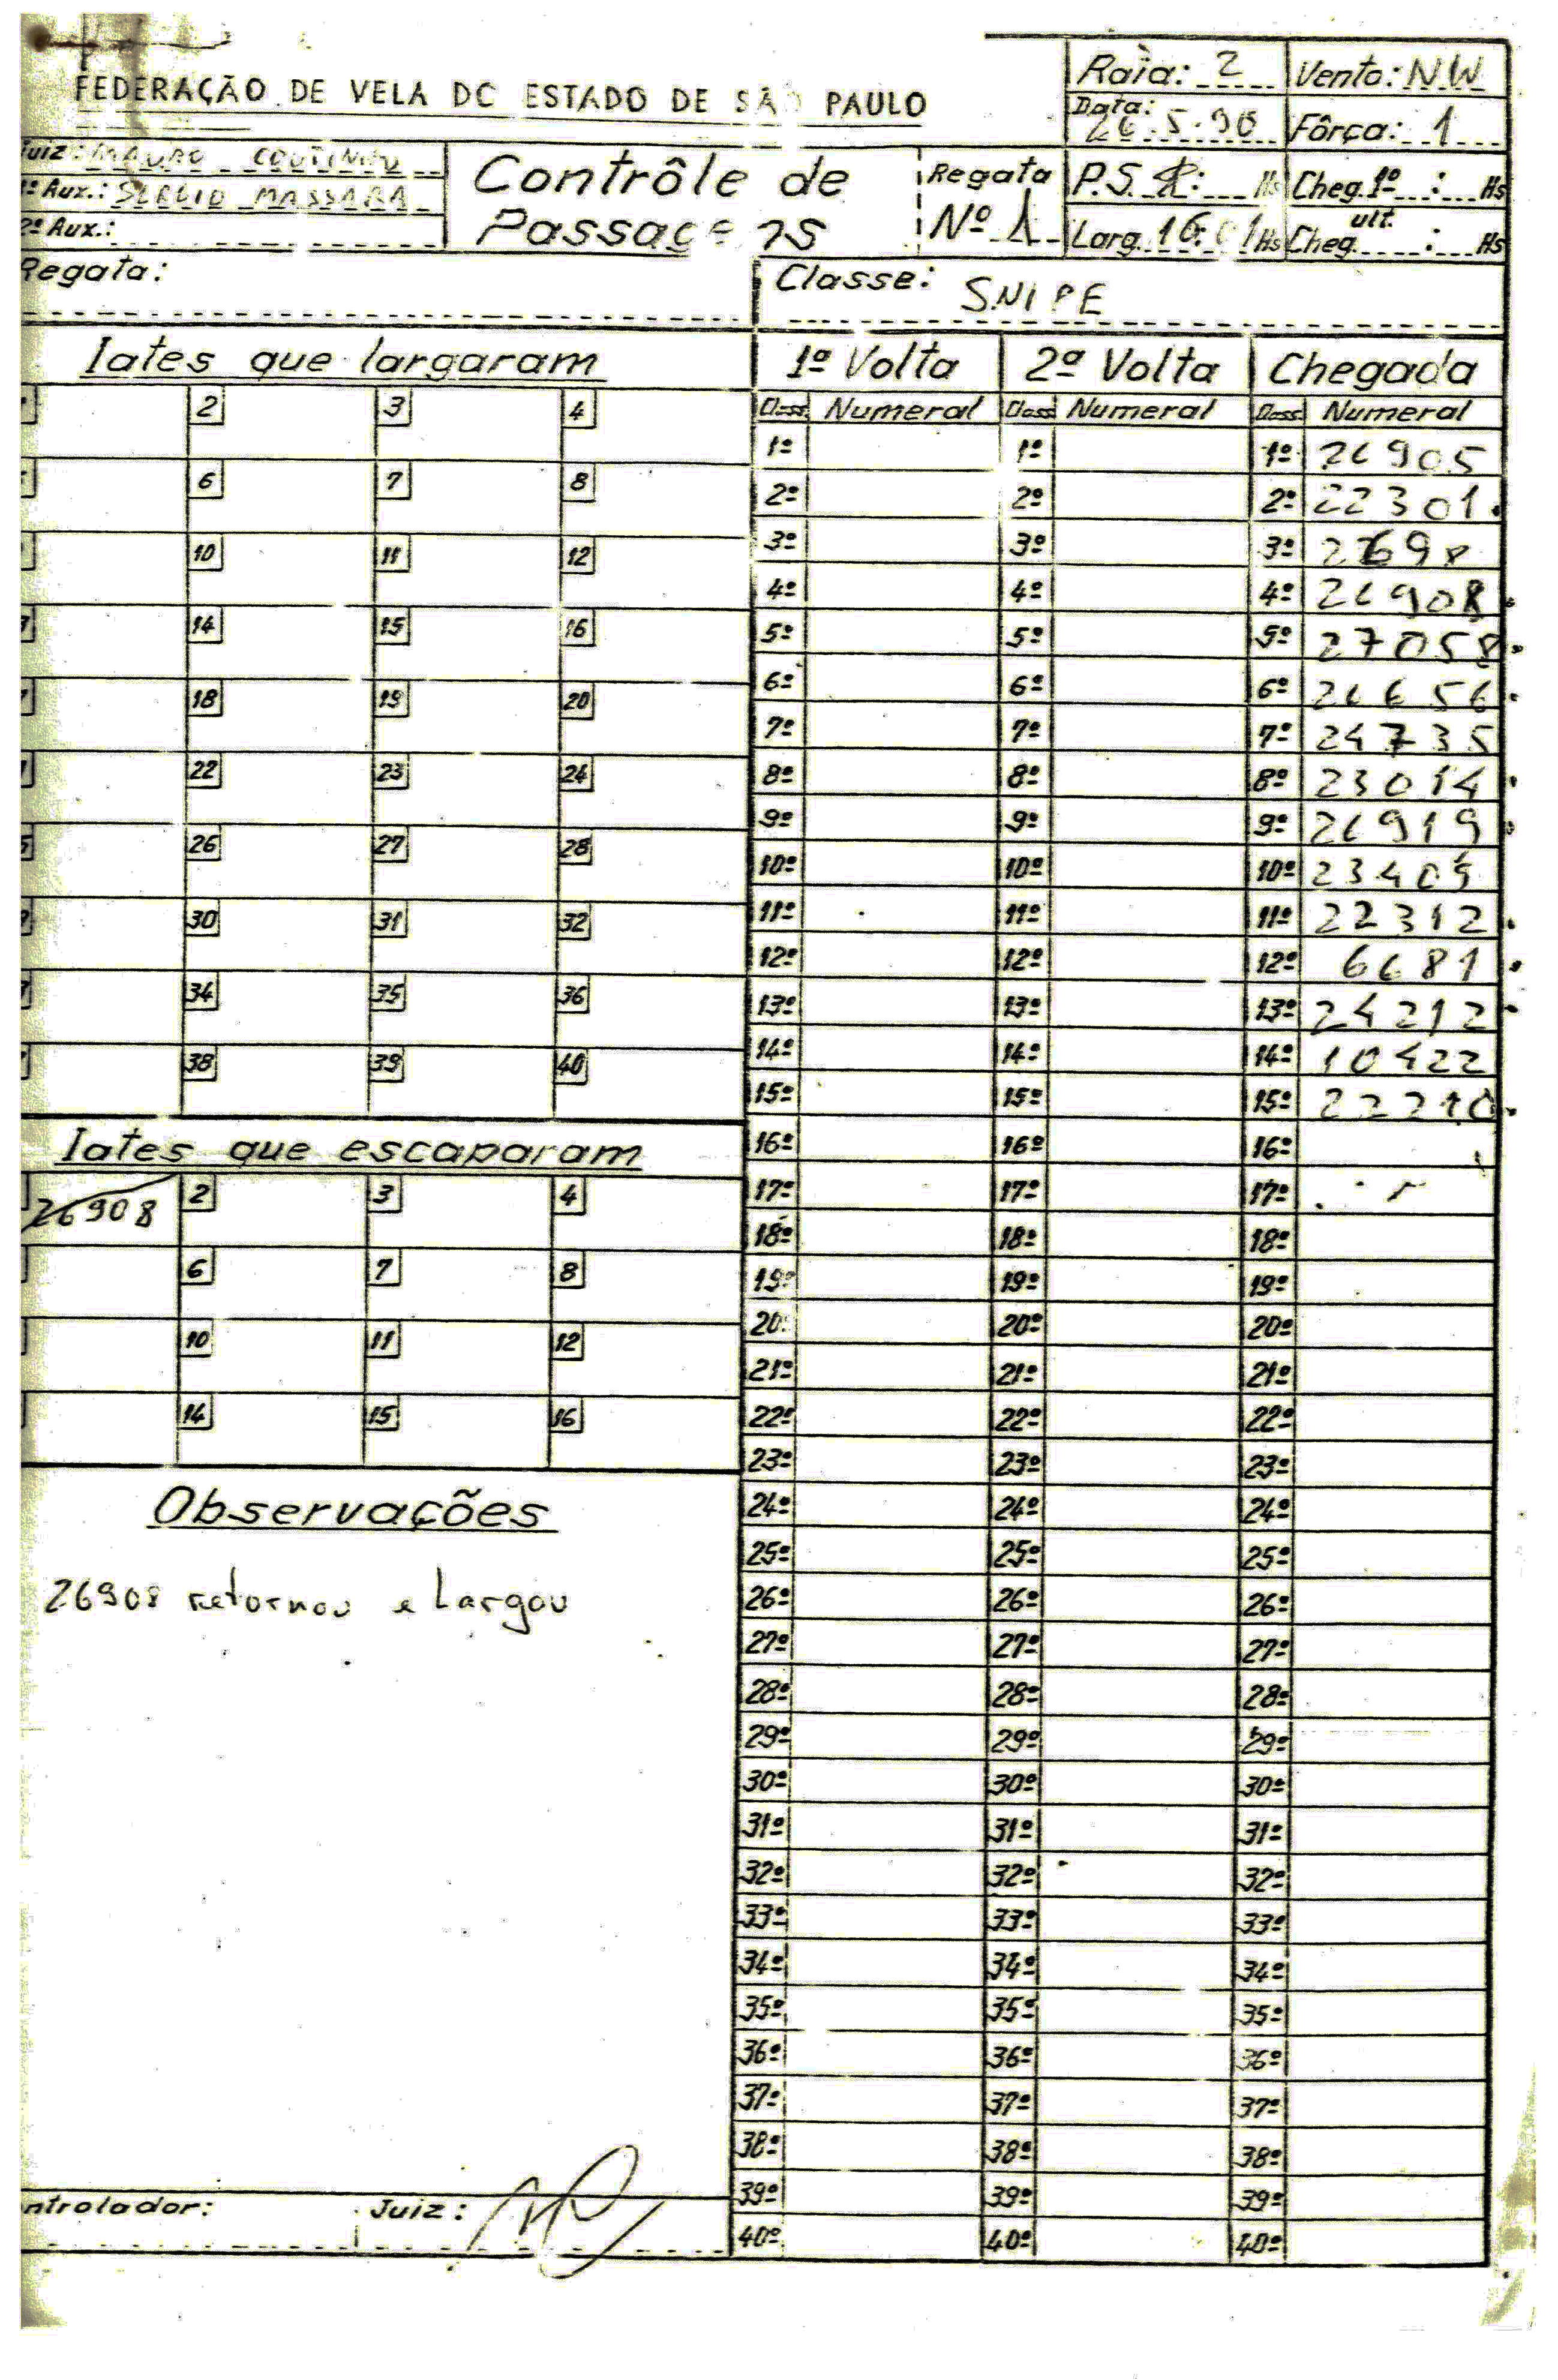 FEDERAÇÃO DE VELA DO ESTADO DE SÃO PAULO
Raia: 2 Vento: NW
Data: 26.5.90 Fôrça: 1
Juiz: MAURO COUTINHO
º Aux.: MASSARA
2º Aux.:
Contrôle de
Passagens
Regata
Nº 1
P.S. R: Hs Cheg. 1º : Hs
Larg. 16:01 Hs Cheg. ult. : Hs
Regata: Classe: SNIPE
Iates que largaram
2 3 4
6 7 8
10 11 12
14 15 16
18 19 20
22 23 24
26 27 28
30 31 32
34 35 36
38 39 40
Iates que escaparam
26908 2 3 4
6 7 8
10 11 12
14 15 16
Observações
26908 retornou e largou
ntrolador: Juiz:
1ª Volta 2ª Volta Chegada
Class. Numeral Class. Numeral Class. Numeral
1º 1º 1º 26905
2º 2º 2º 22301
3º 3º 3º
4º 4º 4º 26908
5º 5º 5º 27058
6º 6º 6º 26656
7º 7º 7º 24735
8º 8º 8º 23014
9º 9º 9º 26919
10º 10º 10º 23409
11º 11º 11º 22312
12º 12º 12º 6681
13º 13º 13º 24212
14º 14º 14º 10422
15º 15º 15º 22210
16º 16º 16º
17º 17º 17º
18º 18º 18º
19º 19º 19º
20º 20º 20º
21º 21º 21º
22º 22º 22º
23º 23º 23º
24º 24º 24º
25º 25º 25º
26º 26º 26º
27º 27º 27º
28º 28º 28º
29º 29º 29º
30º 30º 30º
31º 31º 31º
32º 32º 32º
33º 33º 33º
34º 34º 34º
35º 35º 35º
36º 36º 36º
37º 37º 37º
38º 38º 38º
39º 39º 39º
40º 40º 40º